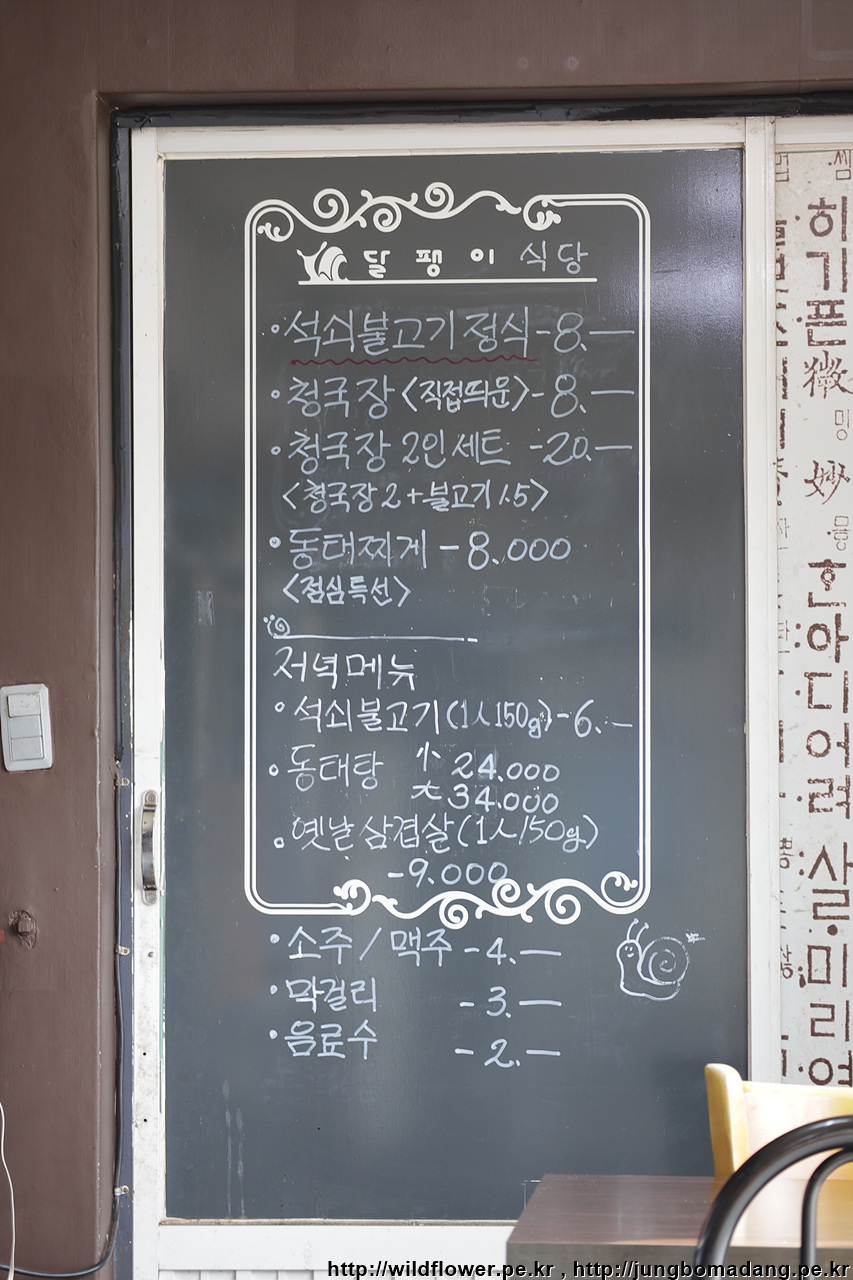 달팽이 식당
• 석쇠불고기 정식 - 8.—
• 청국장 <직접띄운> - 8.—
• 청국장 2인 세트 - 20.—
<청국장 2 + 불고기 1.5>
• 동태찌게 - 8.000
<점심특선>
저녁메뉴
• 석쇠불고기 (1人 150g) - 6.—
• 동태탕 小 24.000
大 34.000
• 옛날 삼겹살 (1人 150g)
- 9.000
• 소주 / 맥주 - 4.—
• 막걸리 - 3.—
• 음료수 - 2.—
http://wildflower.pe.kr , http://jungbomadang.pe.kr